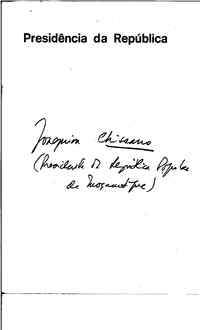 Presidência da República
Joaquim Chissano
(Presidente da República Popular
de Moçambique)